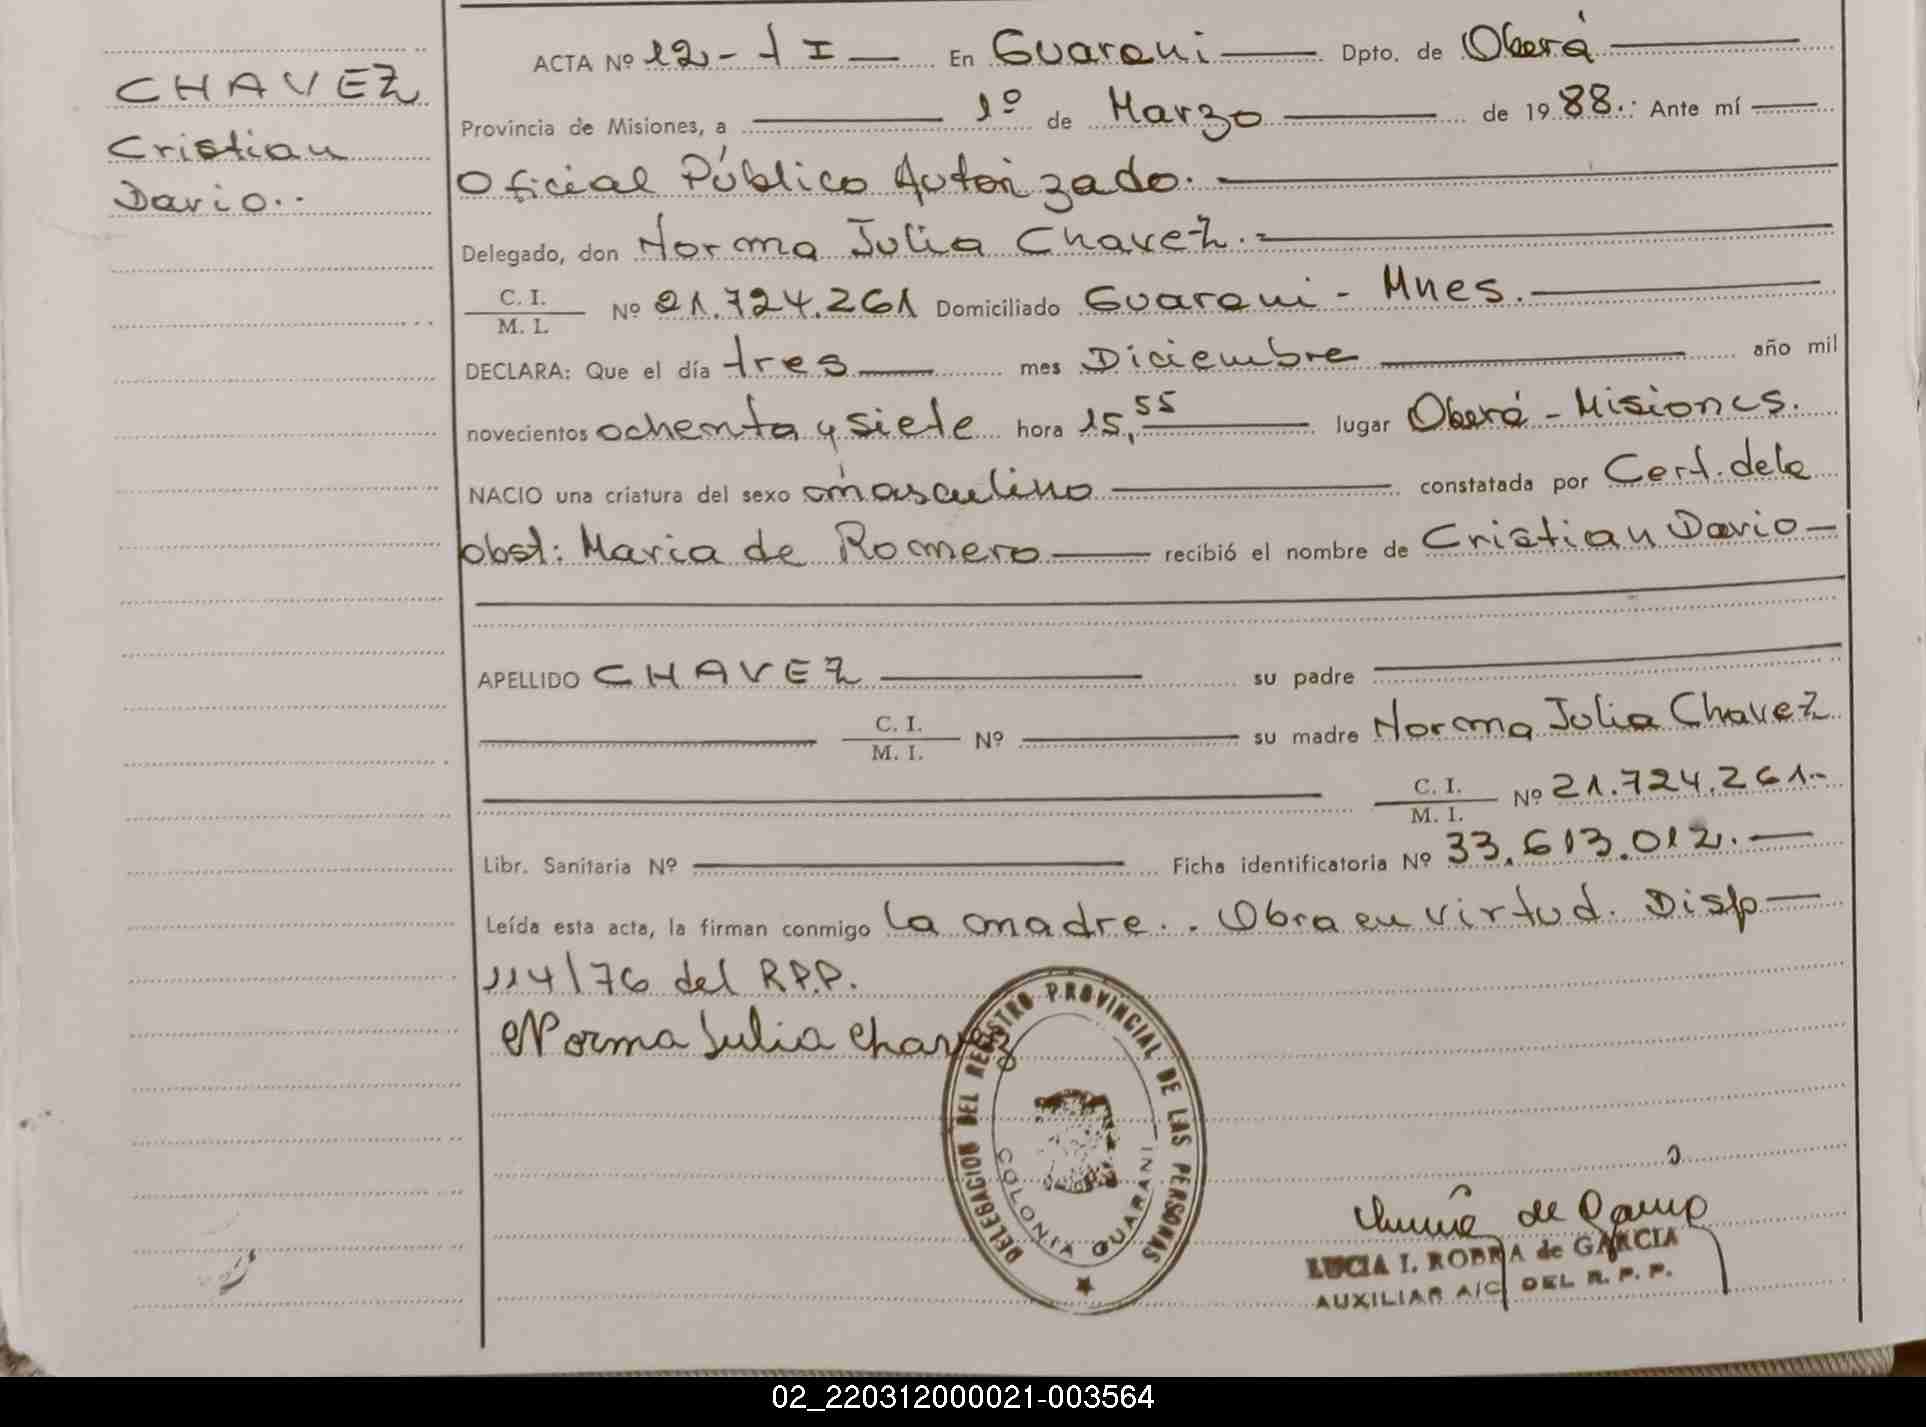 CHAVEZ
Cristian
Dario..
ACTA Nº 12 - t I — En Guarani — Dpto. de Oberá —
Provincia de Misiones, a — 1º de Marzo — de 1988.: Ante mí —
Oficial Público Autorizado. —
Delegado, don Norma Julia Chavez. —
C. I.
M. I. Nº 21.724.261 Domiciliado Guarani - Mnes. —
DECLARA: Que el día tres — mes Diciembre — año mil
novecientos ochenta y siete hora 15,55 — lugar Oberá - Misiones.
NACIO una criatura del sexo masculino — constatada por Cert. dela
obst: Maria de Romero — recibió el nombre de Cristian Dario —
APELLIDO CHAVEZ — su padre —
— C. I.
M. I. Nº — su madre Norma Julia Chavez
— C. I.
M. I. Nº 21.724.261.-
Libr. Sanitaria Nº — Ficha identificatoria Nº 33.613.012. —
Leída esta acta, la firman conmigo la madre.. Obra en virtud. Disp —
114/76 del R.P.P.
Norma Julia Chavez
DELEGACION DEL REGISTRO PROVINCIAL DE LAS PERSONAS
COLONIA GUARANI
de
LUCIA I. de GARCIA
AUXILIAR A/C DEL R. P. P.
02_220312000021-003564